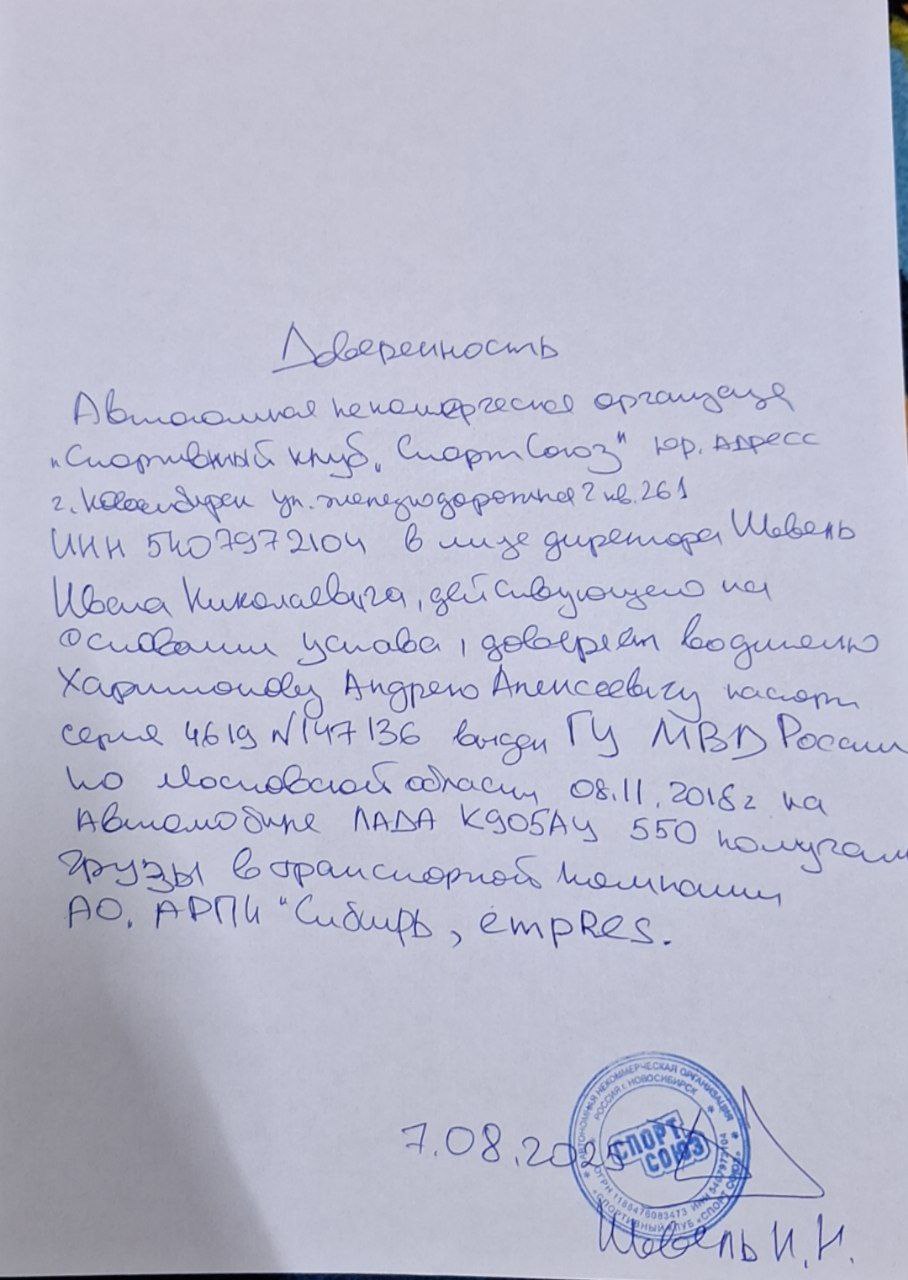 Доверенность
Автономная некоммерческая организация
"Спортивный клуб "СпортСоюз" юр. адресс
г. Новосибирск ул. Железнодорожная 2 кв. 261
ИНН 5407972104 в лице директора Шовель
Ивана Николаевича, действующего на
Основании устава, доверяет водителю
Харитонову Андрею Алексеевичу паспорт
серия 4619 N147136 выдан ГУ МВД России
по Московской области 08.11.2018г на
Автомобиле ЛАДА К905АУ 550 получать
грузы в транспортной компании
АО. АРПИ "Сибирь, empRes.
7.08.2025
АВТОНОМНАЯ НЕКОММЕРЧЕСКАЯ ОРГАНИЗАЦИЯ
РОССИЯ г. НОВОСИБИРСК
СПОРТ
СОЮЗ
ОГРН 1185476083473 ИНН 5407972104
«СПОРТИВНЫЙ КЛУБ «СПОРТ СОЮЗ»
Шовель И.Н.